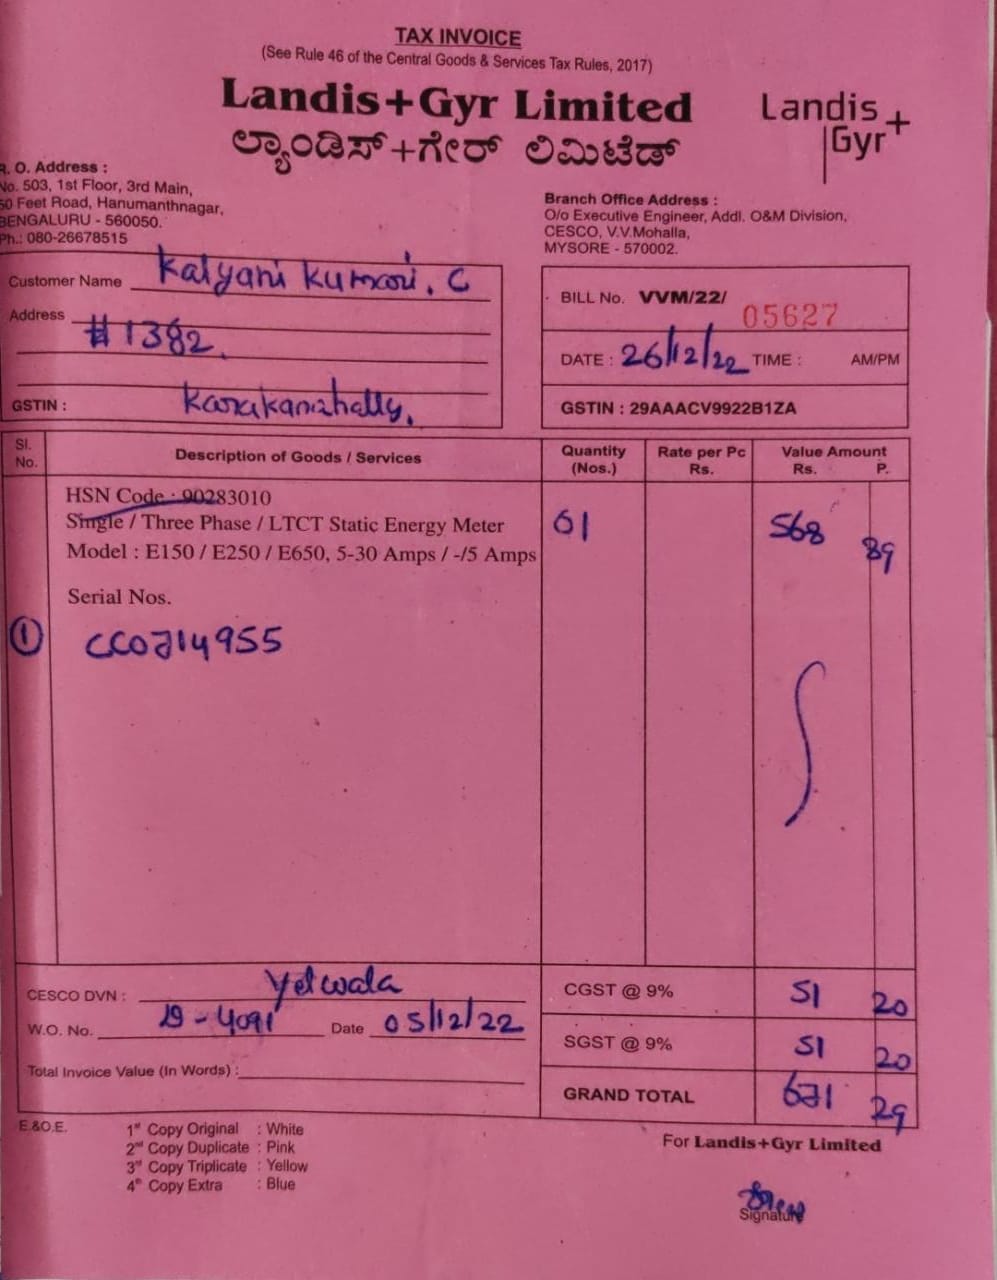 TAX INVOICE
(See Rule 46 of the Central Goods & Services Tax Rules, 2017)
Landis+Gyr Limited
ಲ್ಯಾಂಡಿಸ್+ಗೇರ್ ಲಿಮಿಟೆಡ್
Landis
Gyr+
R. O. Address :
No. 503, 1st Floor, 3rd Main,
50 Feet Road, Hanumanthnagar,
BENGALURU - 560050.
Ph.: 080-26678515
Branch Office Address :
O/o Executive Engineer, Addl. O&M Division,
CESCO, V.V.Mohalla,
MYSORE - 570002.
Customer Name Kalyani Kumari. C
Address #1382,
GSTIN : Karakanahally,
BILL No. VVM/22/ 05627
DATE : 26/12/22 TIME : AM/PM
GSTIN : 29AAACV9922B1ZA
Sl. No. Description of Goods / Services Quantity (Nos.) Rate per Pc Rs. Value Amount Rs. P.
HSN Code : 90283010
Single / Three Phase / LTCT Static Energy Meter 01 568 89
Model : E150 / E250 / E650, 5-30 Amps / -/5 Amps
Serial Nos.
① CC0714955
CESCO DVN : Yelwala
W.O. No. 19-4091 Date 05/12/22
Total Invoice Value (In Words) :
CGST @ 9% 51 20
SGST @ 9% 51 20
GRAND TOTAL 671 29
E.&O.E.
1st Copy Original : White
2nd Copy Duplicate : Pink
3rd Copy Triplicate : Yellow
4th Copy Extra : Blue
For Landis+Gyr Limited
Signature